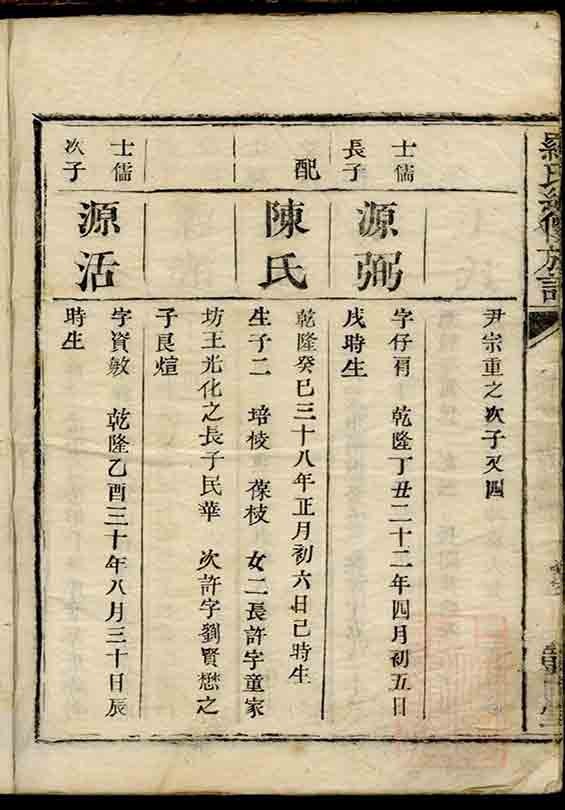 羅氏續修族譜
尹宗重之次子又四
士儒
長子
源弼
字仔肩 乾隆丁丑二十二年四月初五日
戌時生
配
陳氏
乾隆癸巳三十八年正月初六日己時生
生子二 培棱 葆枝 女二長許字童家
坊王光化之長子民華 次許字劉賢懋之
子良煊
士儒
次子
源活
字資敏 乾隆乙酉三十年八月三十日辰
時生